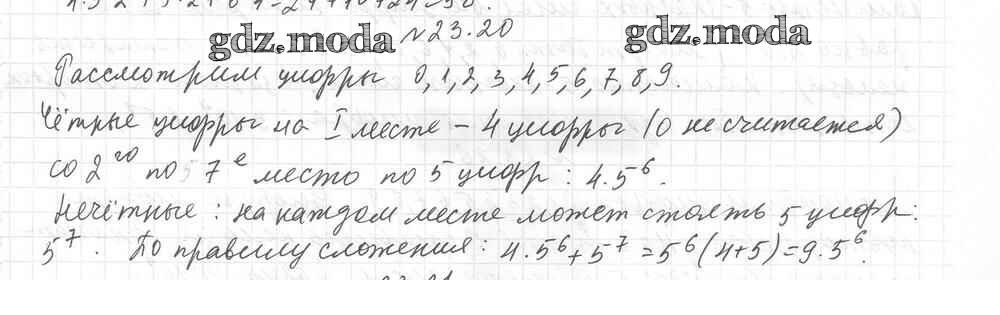 gdz.moda № 23.20 gdz.moda
Рассмотрим цифры 0, 1, 2, 3, 4, 5, 6, 7, 8, 9.
Чётные цифры на I месте – 4 цифры (0 не считается)
со 2го по 7е место по 5 цифр : 4·5⁶.
Нечётные : на каждом месте может стоять 5 цифр:
5⁷. По правилу сложения: 4·5⁶+5⁷=5⁶(4+5)=9·5⁶.